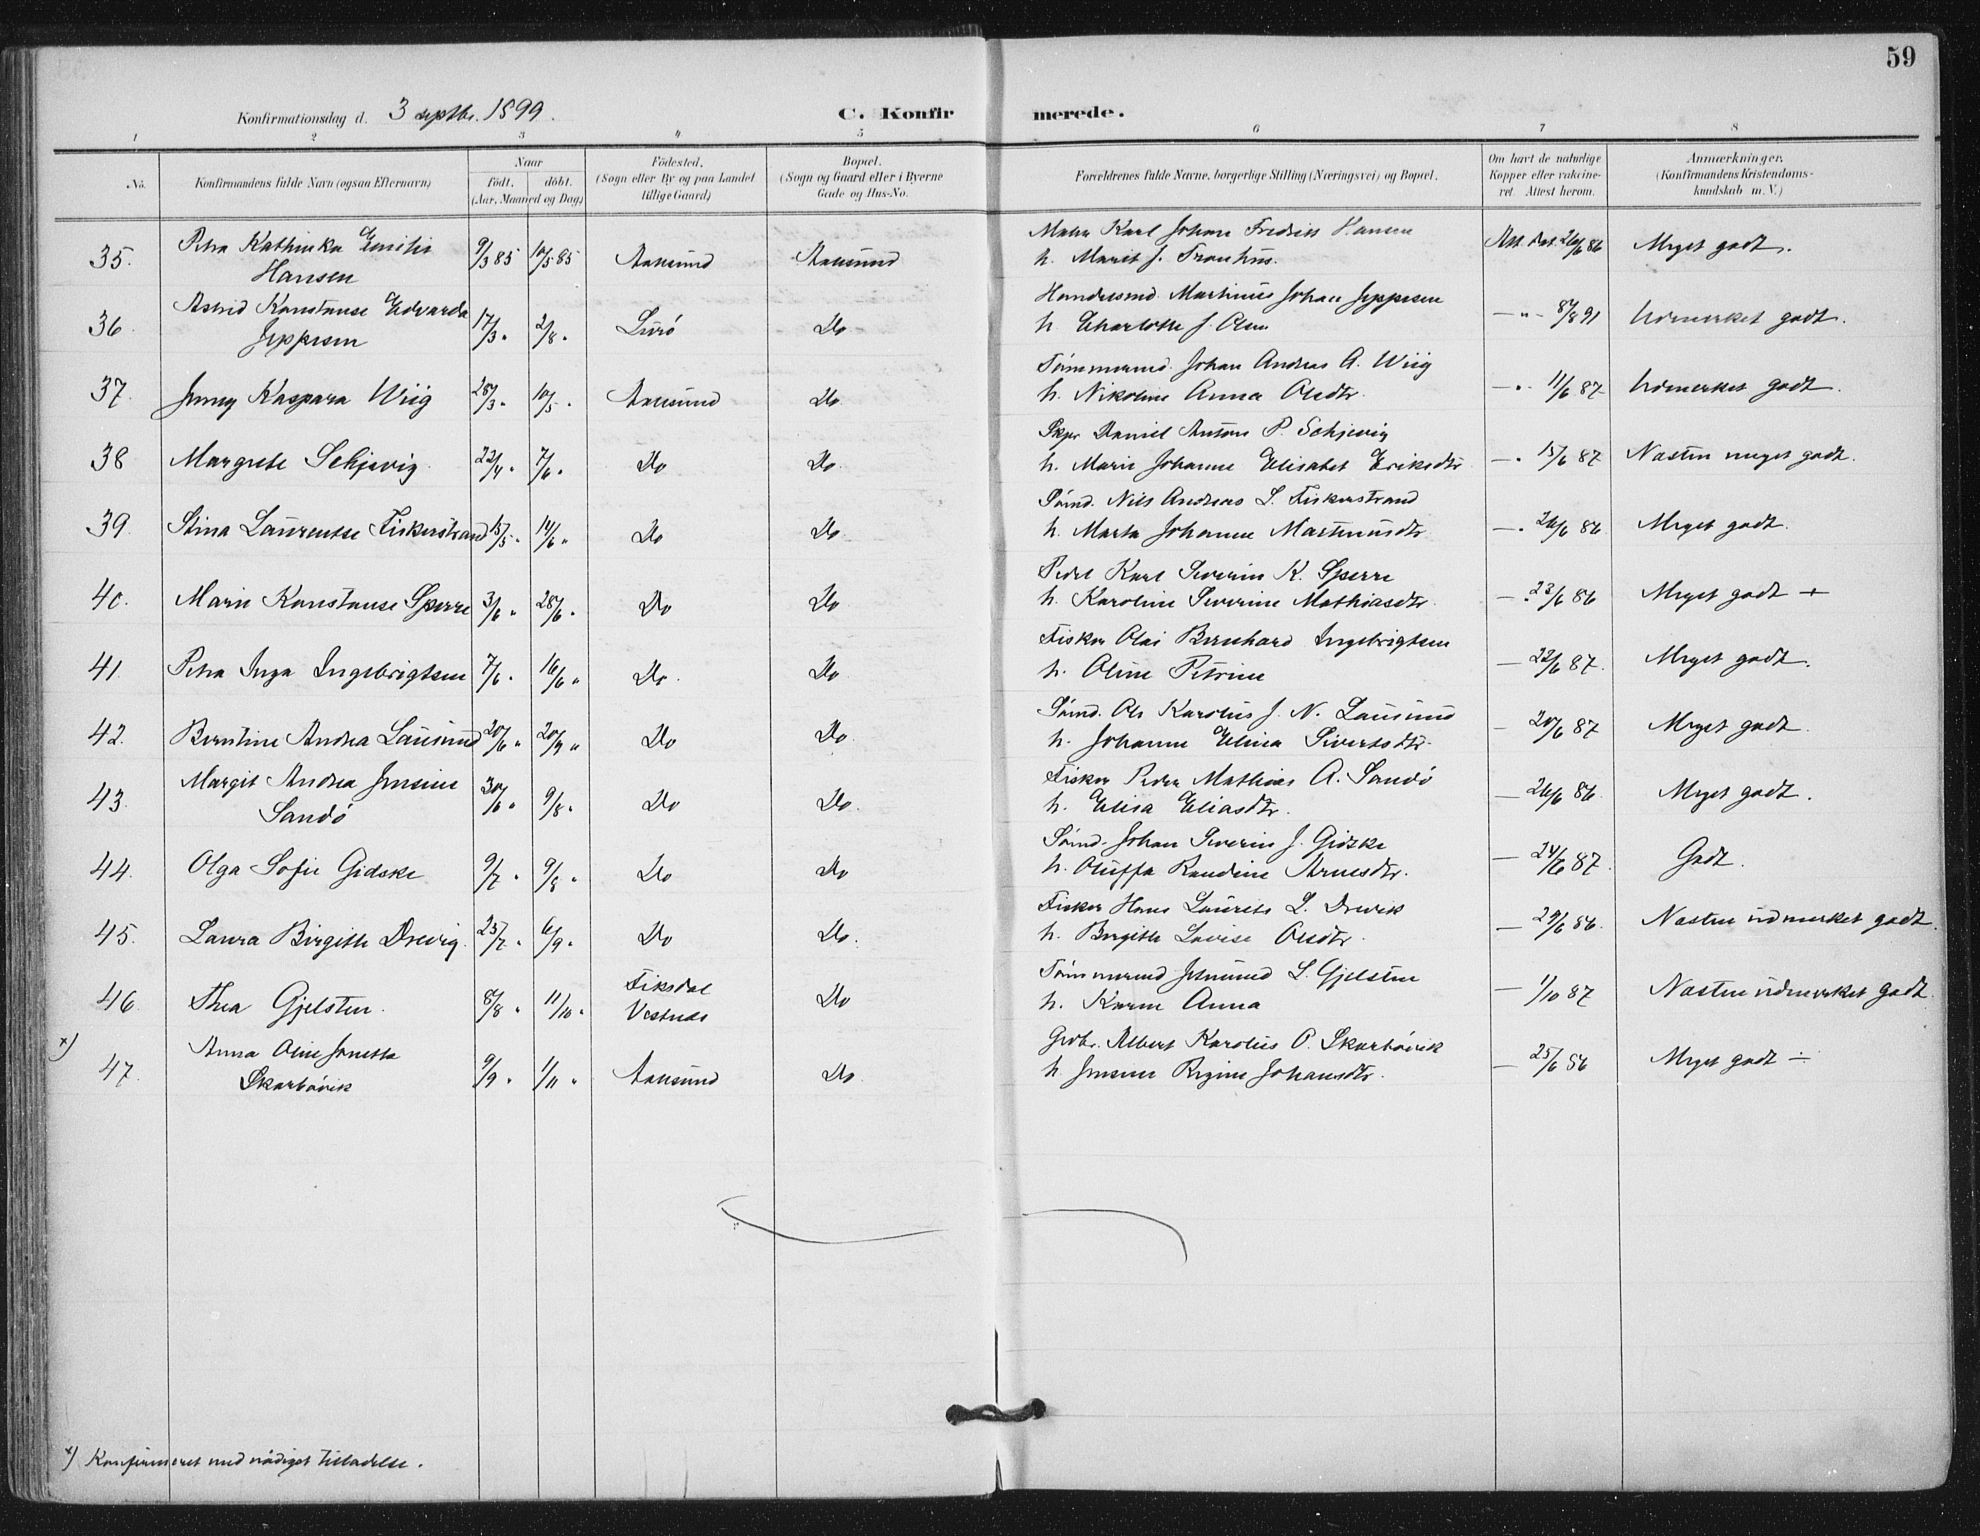 59
Konfirmationsdag d. 3 septbr. 1899.
C. Konfirmerede.
1 2 3 4 5 6 7 8
No. Konfirmandens fulde Navn (ogsaa Efternavn) Naar födt. döbt. (Aar, Maaned og Dag) Födested. (Sogn eller By og paa Landet tillige Gaard) Bopæl. (Sogn og Gaard eller i Byerne Gade og Hus-No. Forældrenes fulde Navne, borgerlige Stilling (Næringsvei) og Bopæl. Om havt de naturlige Kopper eller vakcineret. Attest herom. Anmærkninger. (Konfirmandens Kristendomskundskab m. V.)
35. Petra Kathinka Emilie Hansen 9/3 85 10/5 85 Aalesund Aalesund Maler Karl Johan Fredrik Hansen
h. Marit J. Tronhus. Att. dat. 26/6 86 Meget godt.
36. Astrid Konstanse Edvarda Jeppesen 17/3 " 2/8 " Lurö Do Handelsmd. Martinus Johan Jeppesen
h. Charlotte J. Olsen — " — 8/8 91 Udmerket godt.
37. Jenny Kaspara Wiig 28/3 " 10/5 " Aalesund Do Tömmermd. Johan Andreas A. Wiig
h. Nikoline Anna Olsdtr. — " 11/6 87 Udmerket godt.
38 Margrete Schjevig 22/4 " 7/6 " Do Do. Skpr. Daniel Antone P. Schjevig
h. Marie Johanne Elisabet Eriksdtr. — " 15/6 87 Næsten meget godt.
39. Stina Laurentse Fiskerstrand 15/5 " 14/6 " Do Do. Sömd. Nils Andreas L. Fiskerstrand
h. Marta Johanne Martinusdtr. — " 26/6 86 Meget godt.
40. Marie Konstanse Sperre 3/6 " 28/6 " Do Do Pedel Karl Severin K. Sperre
h. Karoline Severine Mathiasdtr. — " 23/6 86 Meget godt +
41. Petra Inga Ingebrigtsen 7/6 " 16/6 " Do. Do Fisker Olai Bernhard Ingebrigtsen
h. Oline Petrine — 22/6 87. Meget godt.
42. Berntine Andrea Lausund 20/6 " 20/9 " Do Do. Sömd. Ole Karolus J. N. Lausund
h. Johanne Elina Sivertsdtr. — 20/6 87 Meget godt.
43. Margit Andrea Jensine Sandö 30/6 " 9/8 " Do Do. Fisker Peder Mathias A. Sandö
h. Elisa Eliasdtr. — 26/6 86. Meget godt.
44. Olga Sofie Gidske 9/7 " 9/8 " Do Do Sömd. Johan Severin J. Gidske
h. Oluffa Randine Arnesdtr. — 24/6 87. Godt.
45. Laura Birgitte Drevig. 25/7 " 6/9 " Do Do. Fisker Hans Laurits L. Drevik
h. Birgitte Lovise Olsdtr. — 29/6 86. Næsten udmerket godt.
46 Thea Gjelsten. 8/8 " 11/10 " Fiksdal Vestnes Do Tömmermd L. Gjelsten
h. Karen Anna — 1/10 87 Næsten udmerket godt.
x) 47. Anna Oline Jonetta Skarbövik 9/9 " 1/11 " Aalesund Do Grdbr. Albert Karolus O. Skarbövik
h. Jensine Regine Johansdtr. — 25/6 86 Meget godt ÷
x) Konfirmeret med nådigst tilladelse.